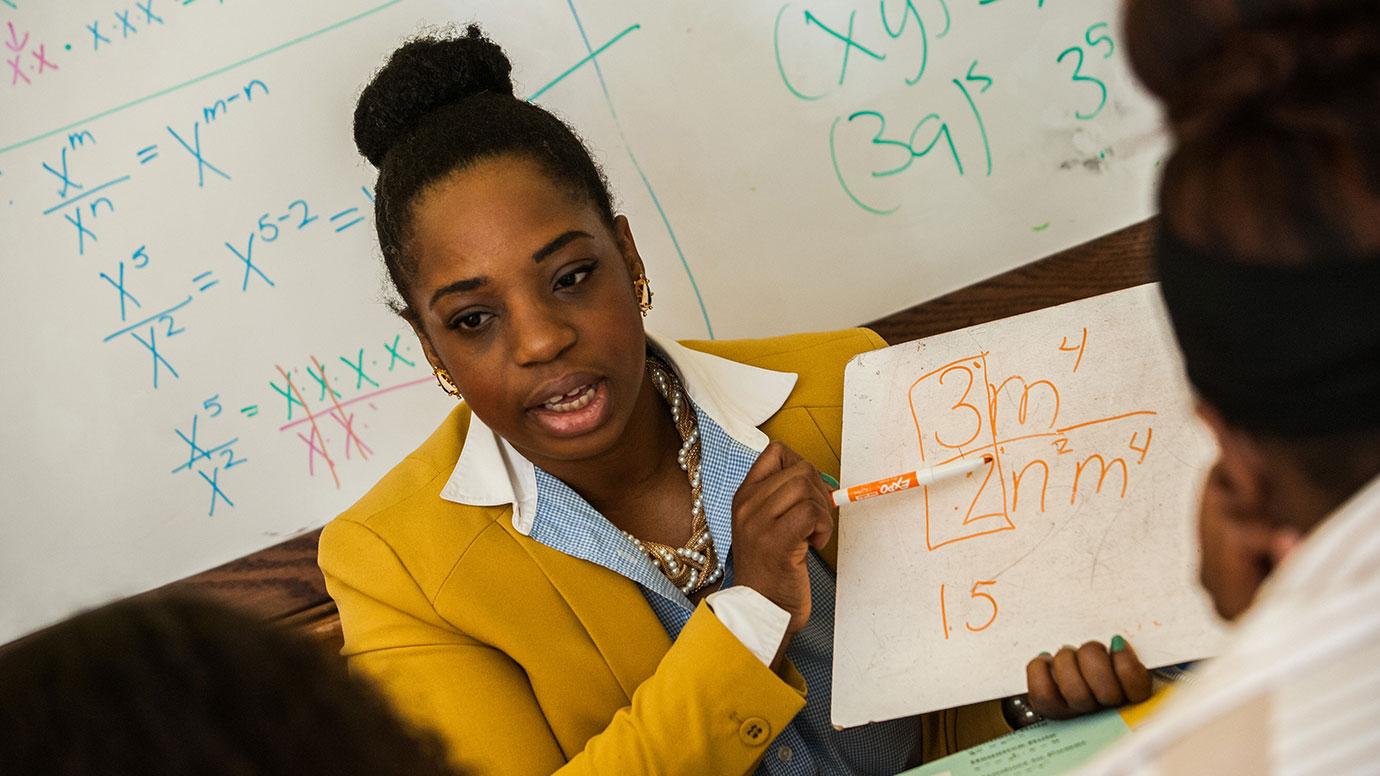 x x · x · x · x
x^m / x^n = x^(m-n)
x^5 / x^2 = x^(5-2) =
x^5 / x^2 = x · x · x · x · x · / x · x ·
(xy) =
(3a)^5 3^5
3m^4 / 2n^2m^4
1.5
EXPO